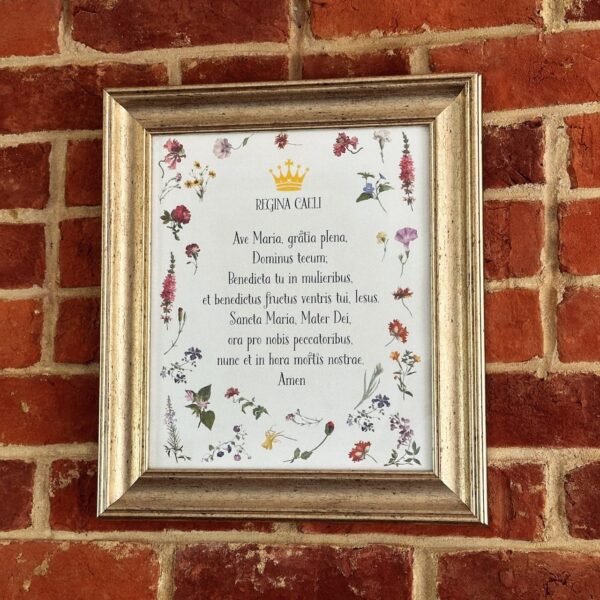 REGINA CAELI
Ave Maria, gratia plena,
Dominus tecum;
Benedicta tu in mulieribus,
et benedictus fructus ventris tui, Iesus.
Sancta Maria, Mater Dei,
ora pro nobis peccatoribus,
nunc et in hora mortis nostrae,
Amen